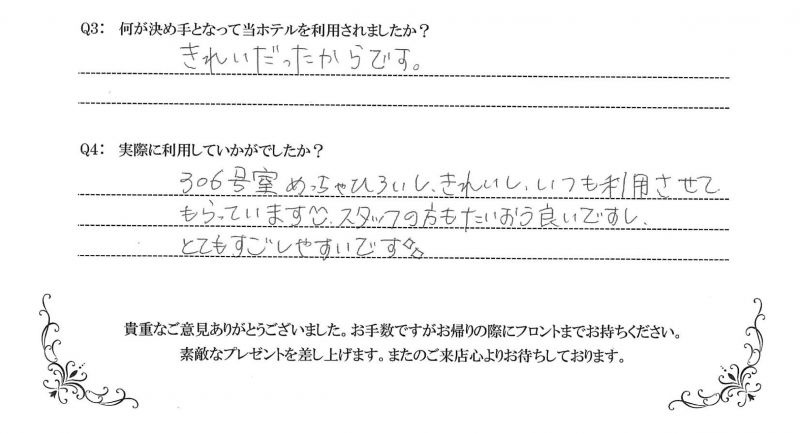 Q3: 何が決め手となって当ホテルを利用されましたか?
きれいだったからです。
Q4: 実際に利用していかがでしたか?
306号室めっちゃひろいし、きれいし、いつも利用させて
もらっています。スタッフの方もたいおう良いですし、
とてもすごしやすいです
貴重なご意見ありがとうございました。お手数ですがお帰りの際にフロントまでお持ちください。
素敵なプレゼントを差し上げます。またのご来店心よりお待ちしております。